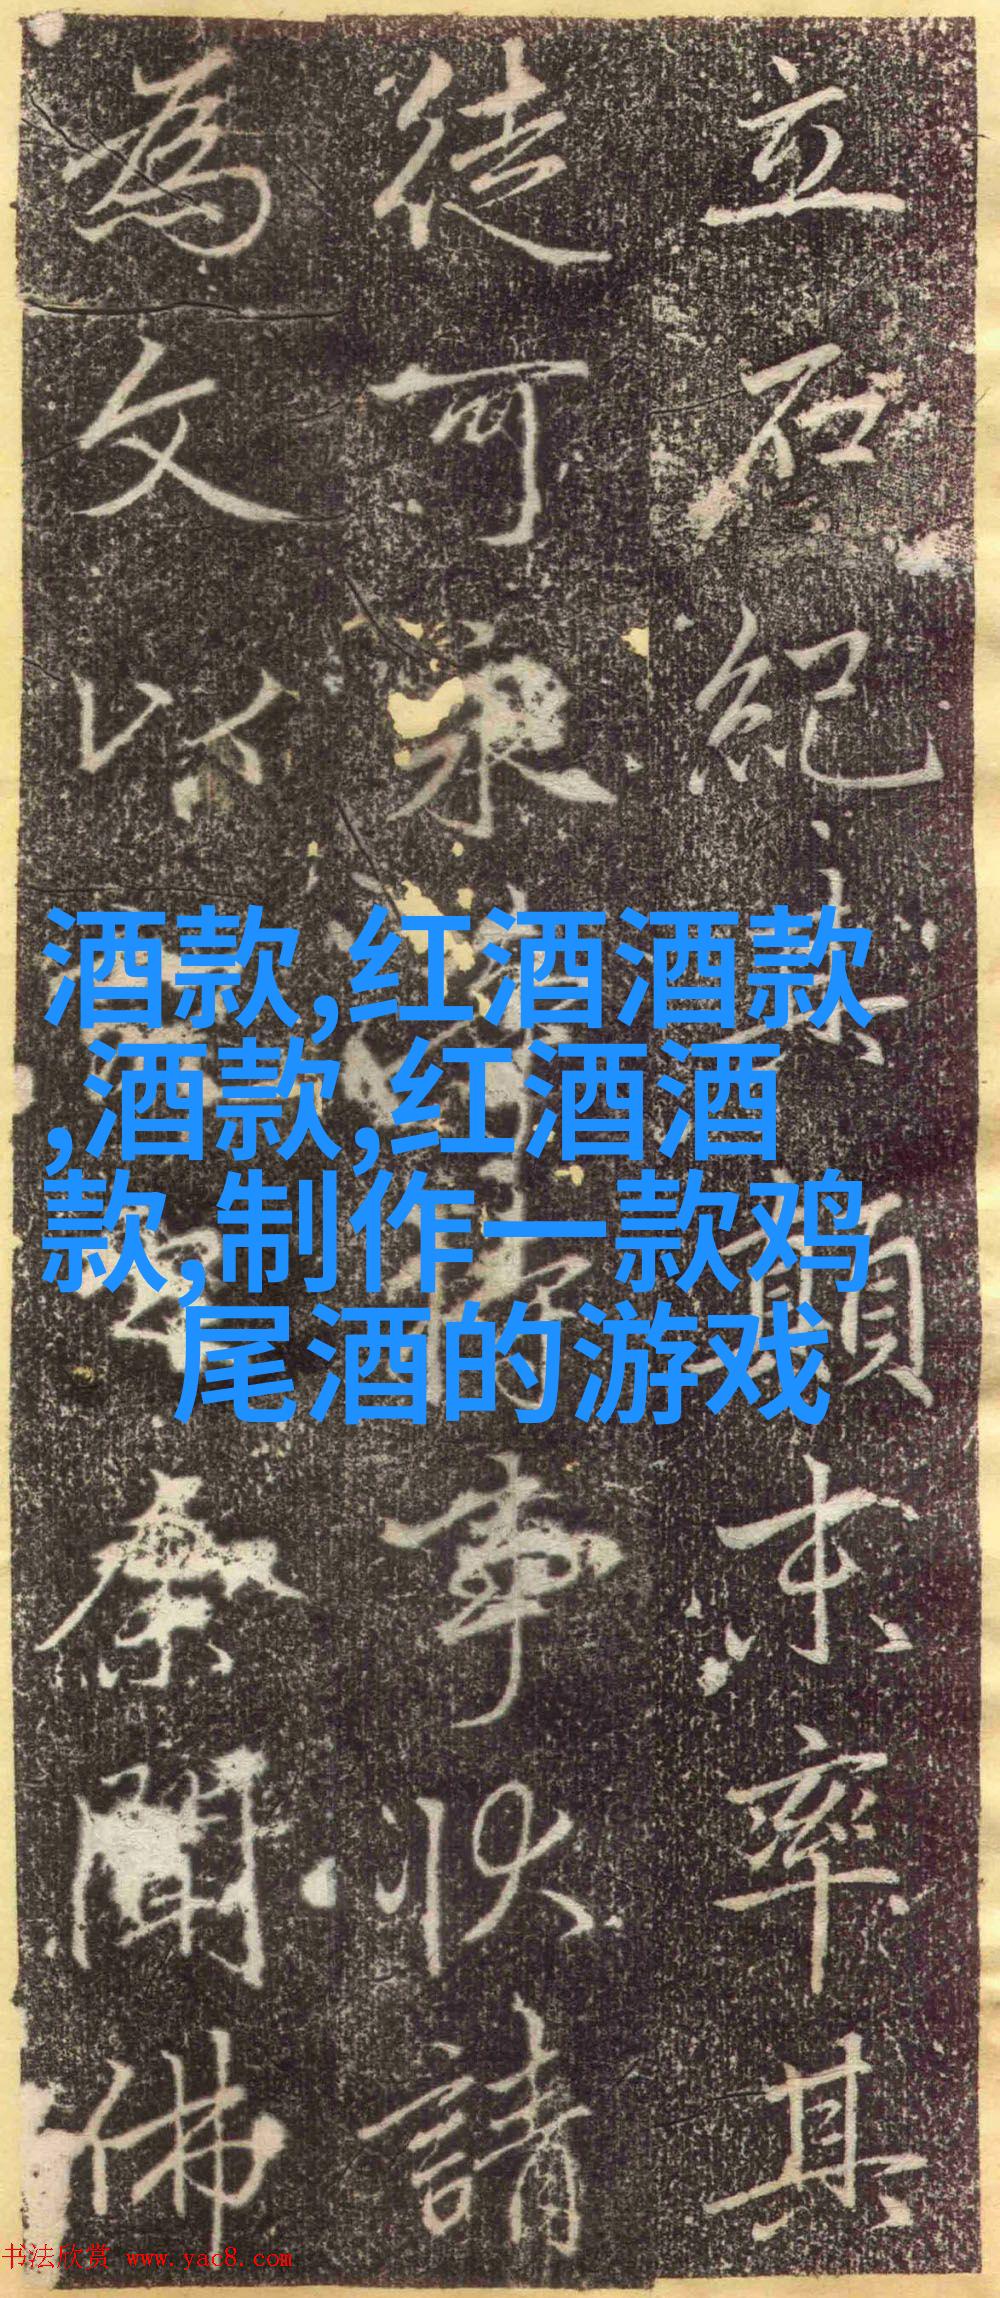 立石紀未率其
徒可事狀請
為文以聞佛
酒款,红酒酒款
,酒款,红酒酒
款,制作一款鸡
尾酒的游戏
书法欣赏 www.yac8.com